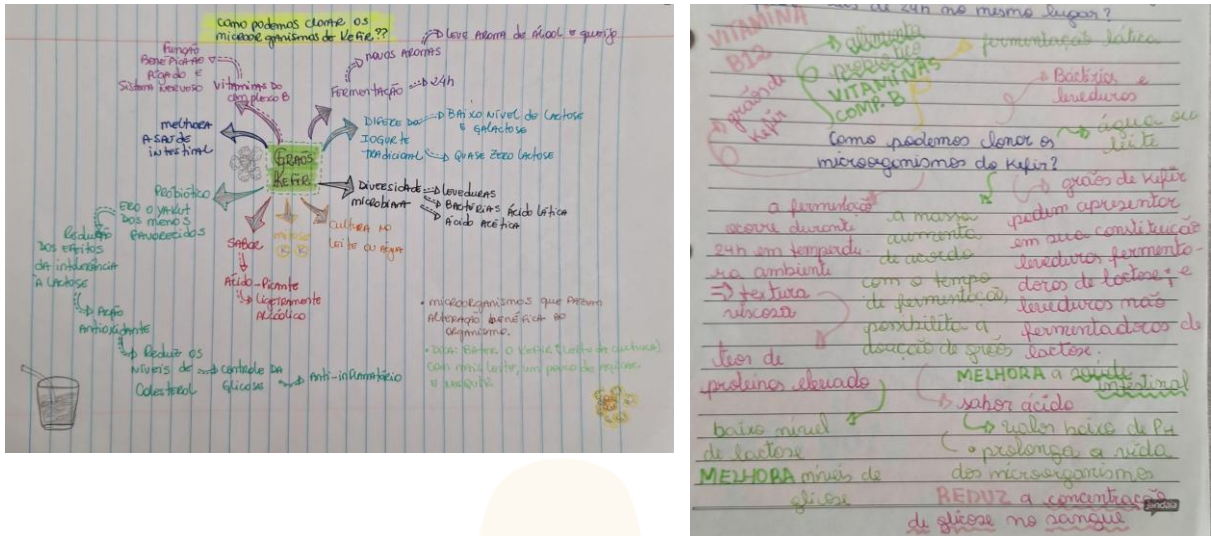 COMO PODEMOS CLONAR OS
MICROORGANISMOS DE KEFIR??
LEVE AROMA DE ÁLCOOL E QUEIJO
NOVOS AROMAS
FERMENTAÇÃO
24h
Função
Benéfica ao
Fígado e
Sistema Nervoso
Vitaminas do
Complexo B
MELHORA
A SAÚDE
INTESTINAL
GRÃOS
KEFIR
DIFERE DO
IOGURTE
TRADICIONAL
BAIXO NÍVEL DE LACTOSE
E GALACTOSE
QUASE ZERO LACTOSE
DIVERSIDADE
MICROBIANA
LEVEDURAS
BACTÉRIAS ÁCIDO LÁTICA
ÁCIDO ACÉTICA
PROBIÓTICO
ERA O YAKUT
DOS MENOS
FAVORECIDOS
Redução
DOS EFEITOS
DA INTOLERÂNCIA
À LACTOSE
AÇÃO
ANTIOXIDANTE
Reduz os
NÍVEIS DE
COLESTEROL
CONTROLE DA
GLICOSE
ANTI-INFLAMATÓRIO
SABOR
ÁCIDO-PICANTE
LIGEIRAMENTE
ALCOÓLICO
CULTURA NO
LEITE OU ÁGUA
• MICROORGANISMOS QUE
ALTERAÇÃO BENÉFICA AO
ORGANISMO.
• DICA: BATER O KEFIR (LEITE DA CULTURA)
COM MAIS LEITE, UM POUCO DE
de 24h no mesmo lugar?
VITAMINA
B12
alimento
probiótico
VITAMINAS
COMP. B
fermentação lática
grãos de
Kefir
Bactérias e
leveduras
água ou
leite
Como podemos clonar os
microorganismos do Kefir?
a fermentação
ocorre durante
24h em temperatu-
ra ambiente
=> textura
viscosa
teor de
proteínas elevado
baixo nível
de lactose
MELHORA níveis de
glicose
a massa
aumenta
de acordo
com o tempo
de fermentação,
possibilita a
doação de grãos
grãos de Kefir
podem apresentar
em sua constituição
leveduras fermenta-
doras de lactose; e
leveduras não
fermentadoras de
lactose.
MELHORA a saúde
intestinal
sabor ácido
valor baixo de PH
• prolonga a vida
dos microorganismos
REDUZ a concentração
de glicose no sangue